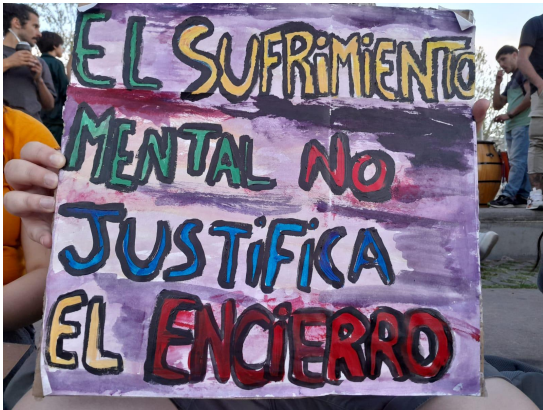 EL SUFRIMIENTO
MENTAL NO
JUSTIFICA
EL ENCIERRO